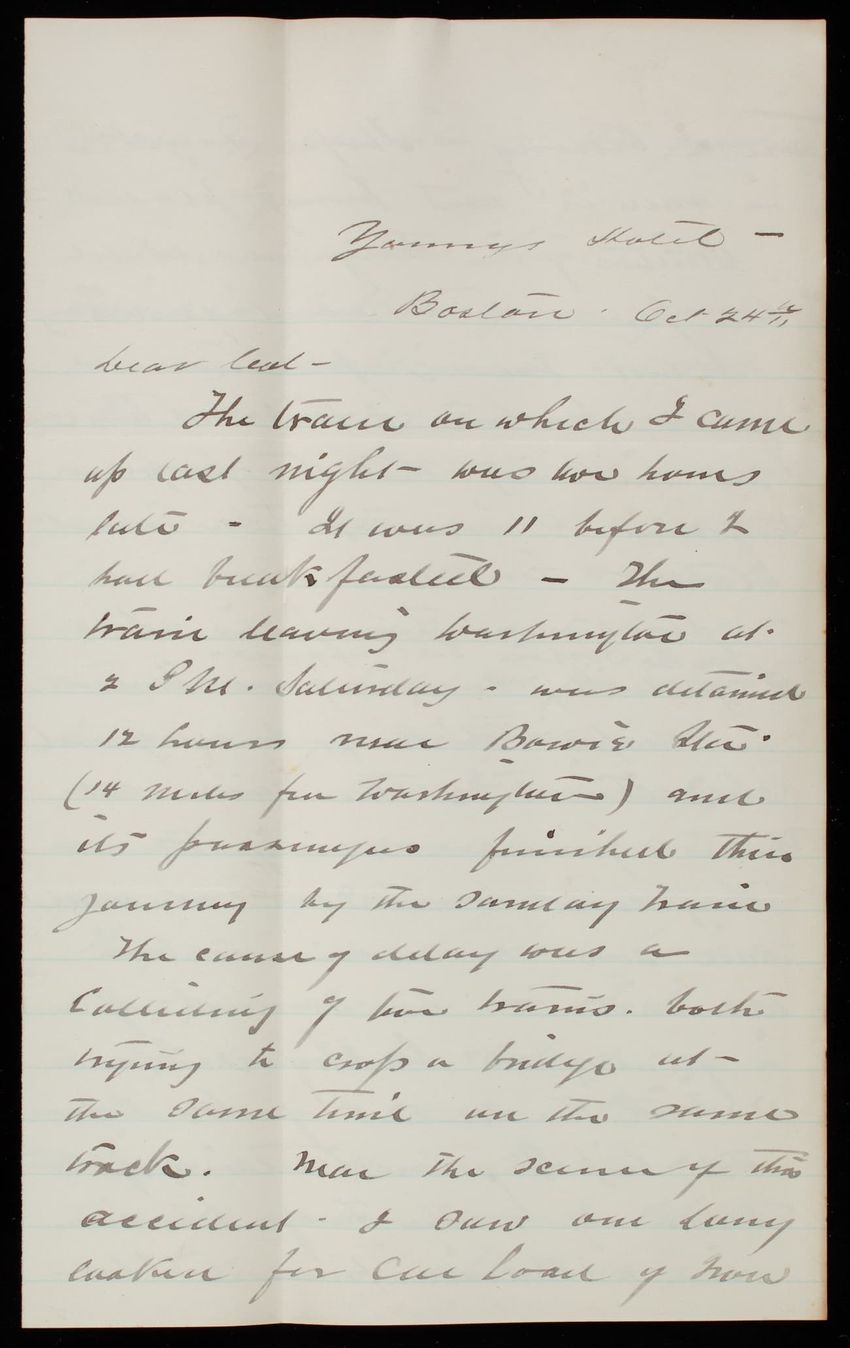 Youngs Hotel —
Boston. Oct 24
Dear Col —
The train on which I came
up last night — was two hours
late - It was 11 before I
had breakfasted — The
train leaving Washington at
2 P.M. Saturday - was detained
12 hours near Bowie Sta.
(14 miles from Washington) and
its passengers finished their
journey by the Sunday train
The cause of delay was a
Colliding of two trains. both
trying to cross a bridge at —
the same time on the same
track. Near the scene of this
accident - I saw one long
for Car load of Iron